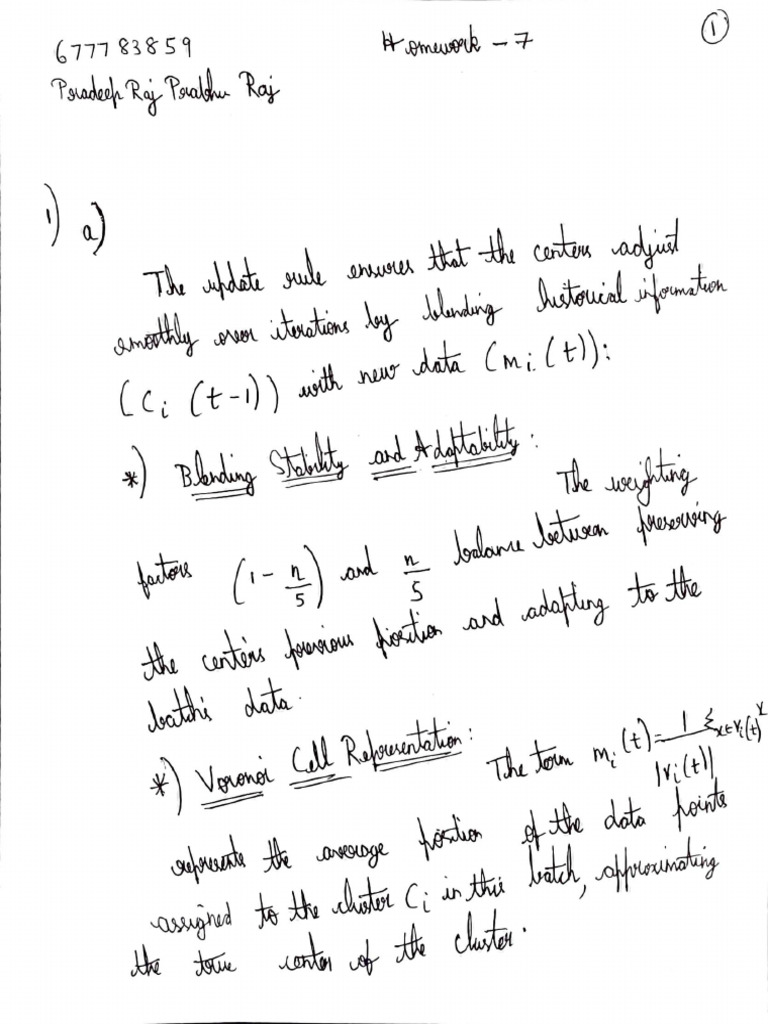 1
677783859 Homework - 7
Pradeep Raj Prabhu Raj
1) a)
The update rule ensures that the centers adjust
smoothly over iterations by blending historical information
(Ci (t-1)) with new data (mi (t)):
*) Blending Stability and Adaptability:
The weighting
factors (1 - n/5) and n/5 balance between preserving
the center's previous position and adapting to the
batch's data.
*) Voronoi Cell Representation:
The term mi(t) = 1/|vi(t)| Σx∈vi(t) x
represents the average position of the data points
assigned to the cluster Ci in this batch, approximating
the true center of the cluster.